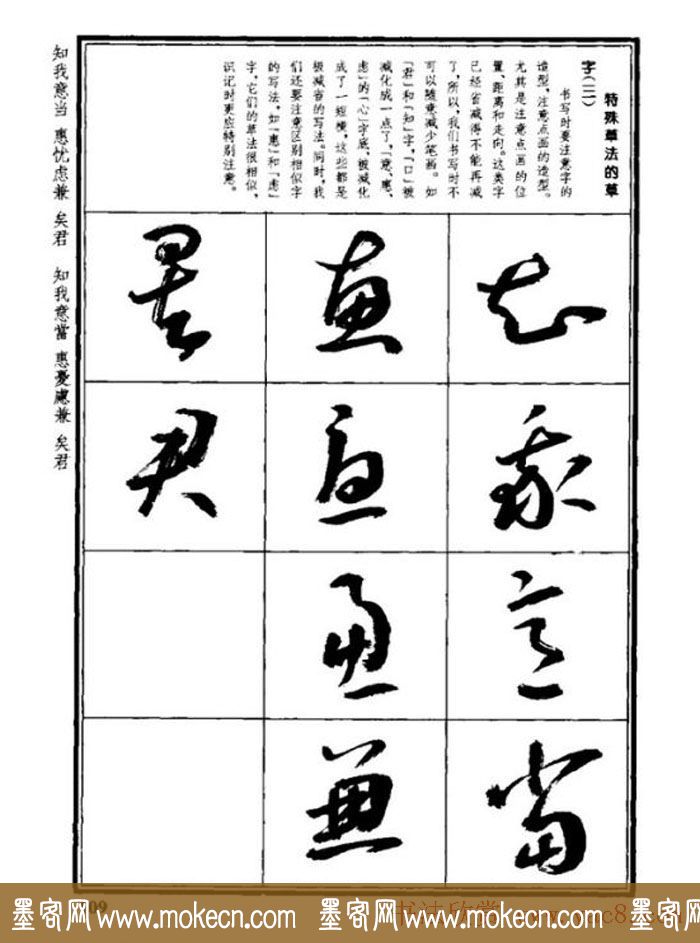 特殊草法的草
字(三)
书写时要注意字的
造型,注意点画的造型。
尤其是注意点画的位
置、距离和走向。这类字
已经省减得不能再减
了,所以,我们书写时不
可以随意减少笔画。如
「君」和「知」字,「口」被
减化成一点了,「意、惠、
虑」的「心」字底,被减化
成了一短横,这些都是
极减省的写法。同时,我
们还要注意区别相似字
的写法。如「惠」和「虑」
字,它们的草法很相似,
识记时更应特别注意。
知我意当
惠忧虑兼
矣君
知我意当 惠忧虑兼 矣君 知我意當 惠憂慮兼 矣君
墨客网 www.mokecn.com 墨客网 www.mokecn.com